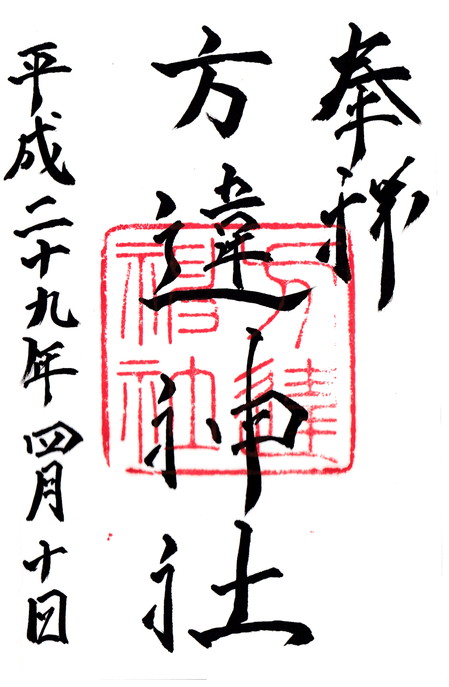 奉拝
方違神社
方違
神社
平成二十九年四月十日